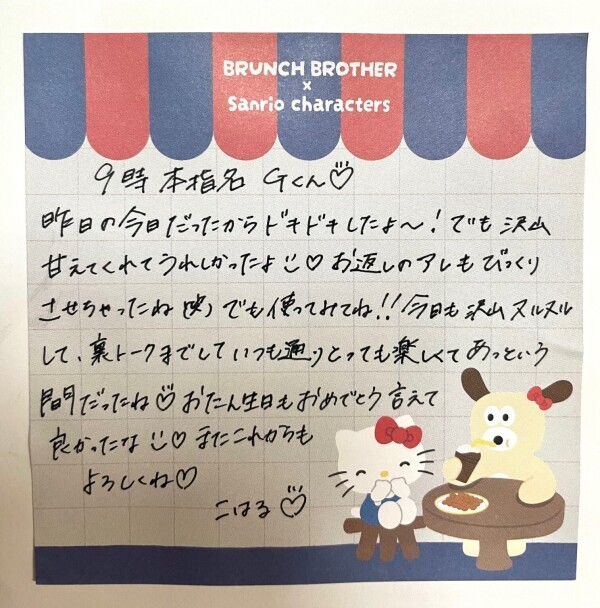 BRUNCH BROTHER
×
Sanrio characters
9時 本指名 Gくん♡
昨日の今日だったからドキドキしたよ〜!でも沢山
甘えてくれてうれしかったよ♡お返しのアレもびっくり
させちゃったね(笑)でも使ってみてね!!今日も沢山ヌルヌル
して、裏トークまでしていつも通りとっても楽しくてあっという
間だったね♡おたん生日もおめでとう言えて
良かったな♡またこれからも
よろしくね♡
こはる♡